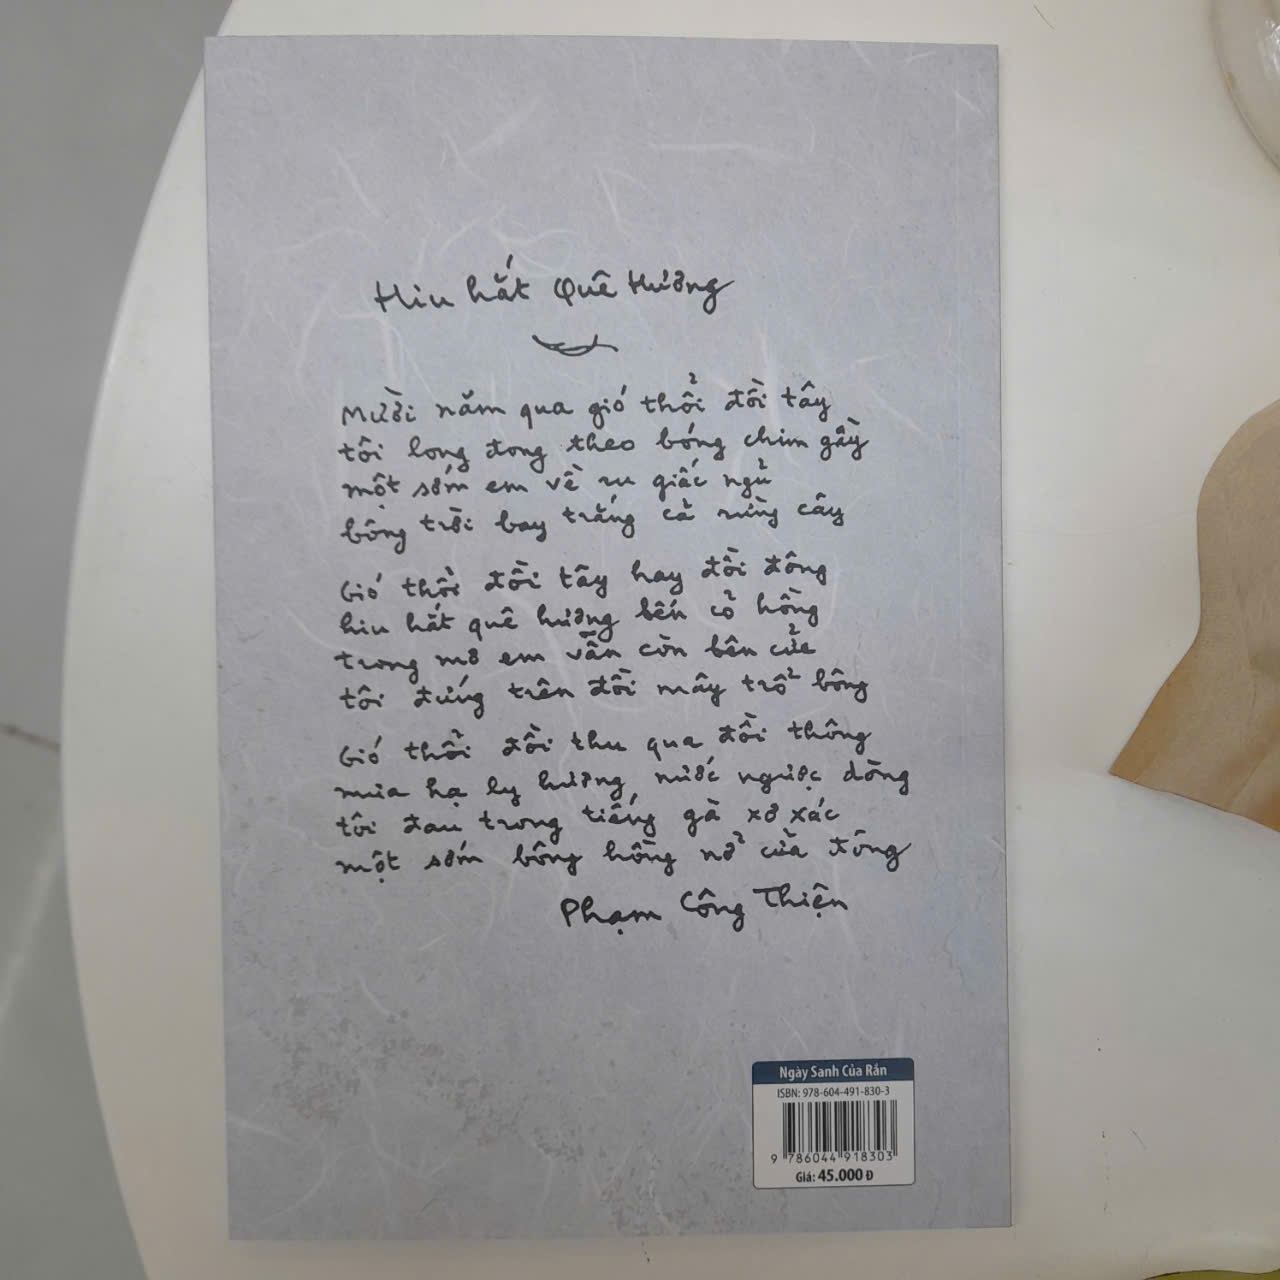 Hiu hắt Quê Hương
Mười năm qua gió thổi đồi tây
tôi long đong theo bóng chim gầy
một sớm em về ru giấc ngủ
bông trời bay trắng cả rừng cây
Gió thổi đồi tây hay đồi đông
hiu hắt quê hương bến cỏ hồng
trong mơ em vẫn còn bên cửa
tôi đứng trên đồi mây trổ bông
Gió thổi đồi thu qua đồi thông
mưa hạ ly hương nước ngược dòng
tôi đau trong tiếng gà xơ xác
một sớm bông hồng nở cửa đông
Phạm Công Thiện
Ngày Sanh Của Rắn
ISBN: 978-604-491-830-3
9 786044 918303
Giá: 45.000 Đ